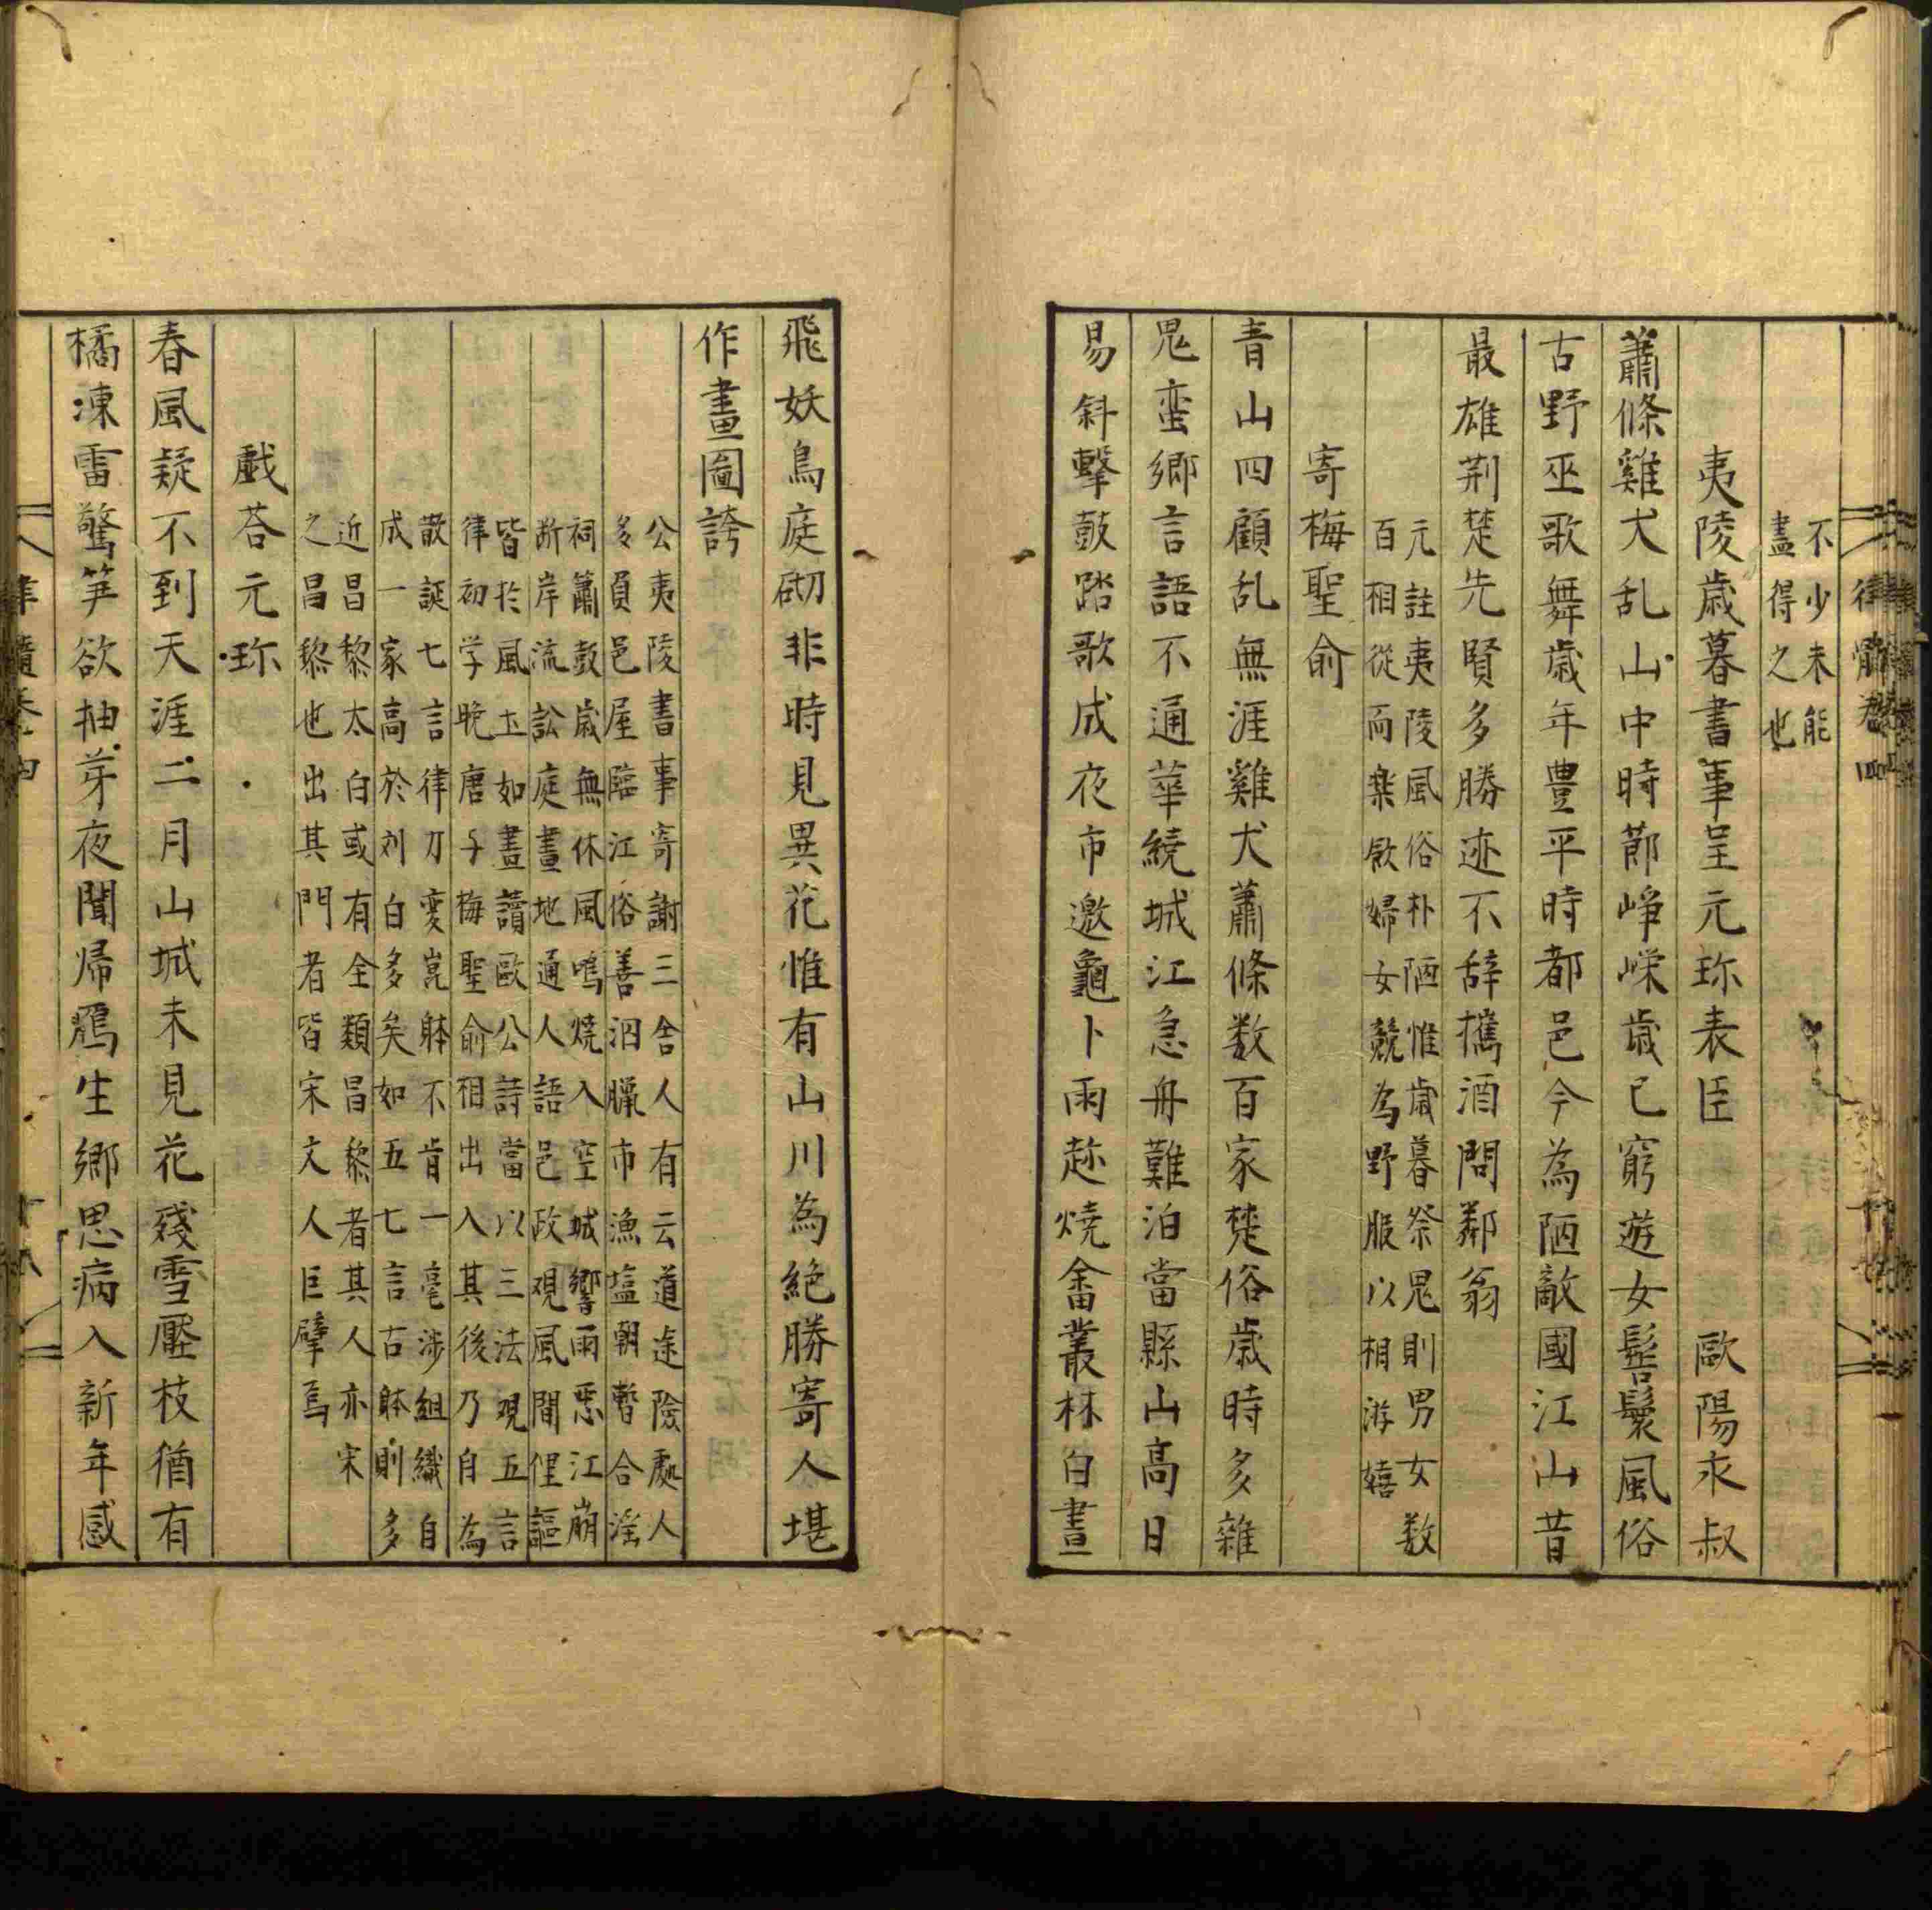 律髓卷四
不少未能
盡得之也
夷陵歳暮書事呈元珎表臣 歐陽永叔
蕭條雞犬乱山中時節崢嶸歳已窮遊女髻鬟風俗
古野巫歌舞歳年豊平時都邑今為陋敵國江山昔
最雄荆楚先賢多勝迹不辞攜酒問鄰翁
元註夷陵風俗朴陋惟歳暮祭鬼則男女数
百相從而楽飲婦女競為野服以相游嬉
寄梅聖俞
青山四顧乱無涯雞犬蕭條数百家楚俗歳時多雜
鬼蛮郷言語不通華繞城江急舟難泊當縣山高日
易斜擊鼓踏歌成夜市邀龜卜雨趂焼畬叢林白晝
飛妖鳥庭砌非時見異花惟有山川為絶勝寄人堪
作畫圖誇
公夷陵書事寄謝三舎人有云道途險處人
多負邑屋臨江俗善泅臘市漁塩朝暫合淫
祠簫鼓歳無休風鳴焼入空城響雨悪江崩
断岸流訟庭畫地通人語邑政觀風間俚謳
皆於風土如畫讀歐公詩當以三法观五言
律初学晚唐与梅聖俞相出入其後乃自為
散誕七言律力変崑体不肯一毫涉組織自
成一家高於刘白多矣如五七言古体則多
近昌黎太白或有全類昌黎者其人亦宋
之昌黎也出其門者皆宋文人巨擘焉
戲荅元珎
春風疑不到天涯二月山城未見花殘雪壓枝猶有
橘凍雷驚笋欲抽芽夜聞帰鴈生郷思病入新年感